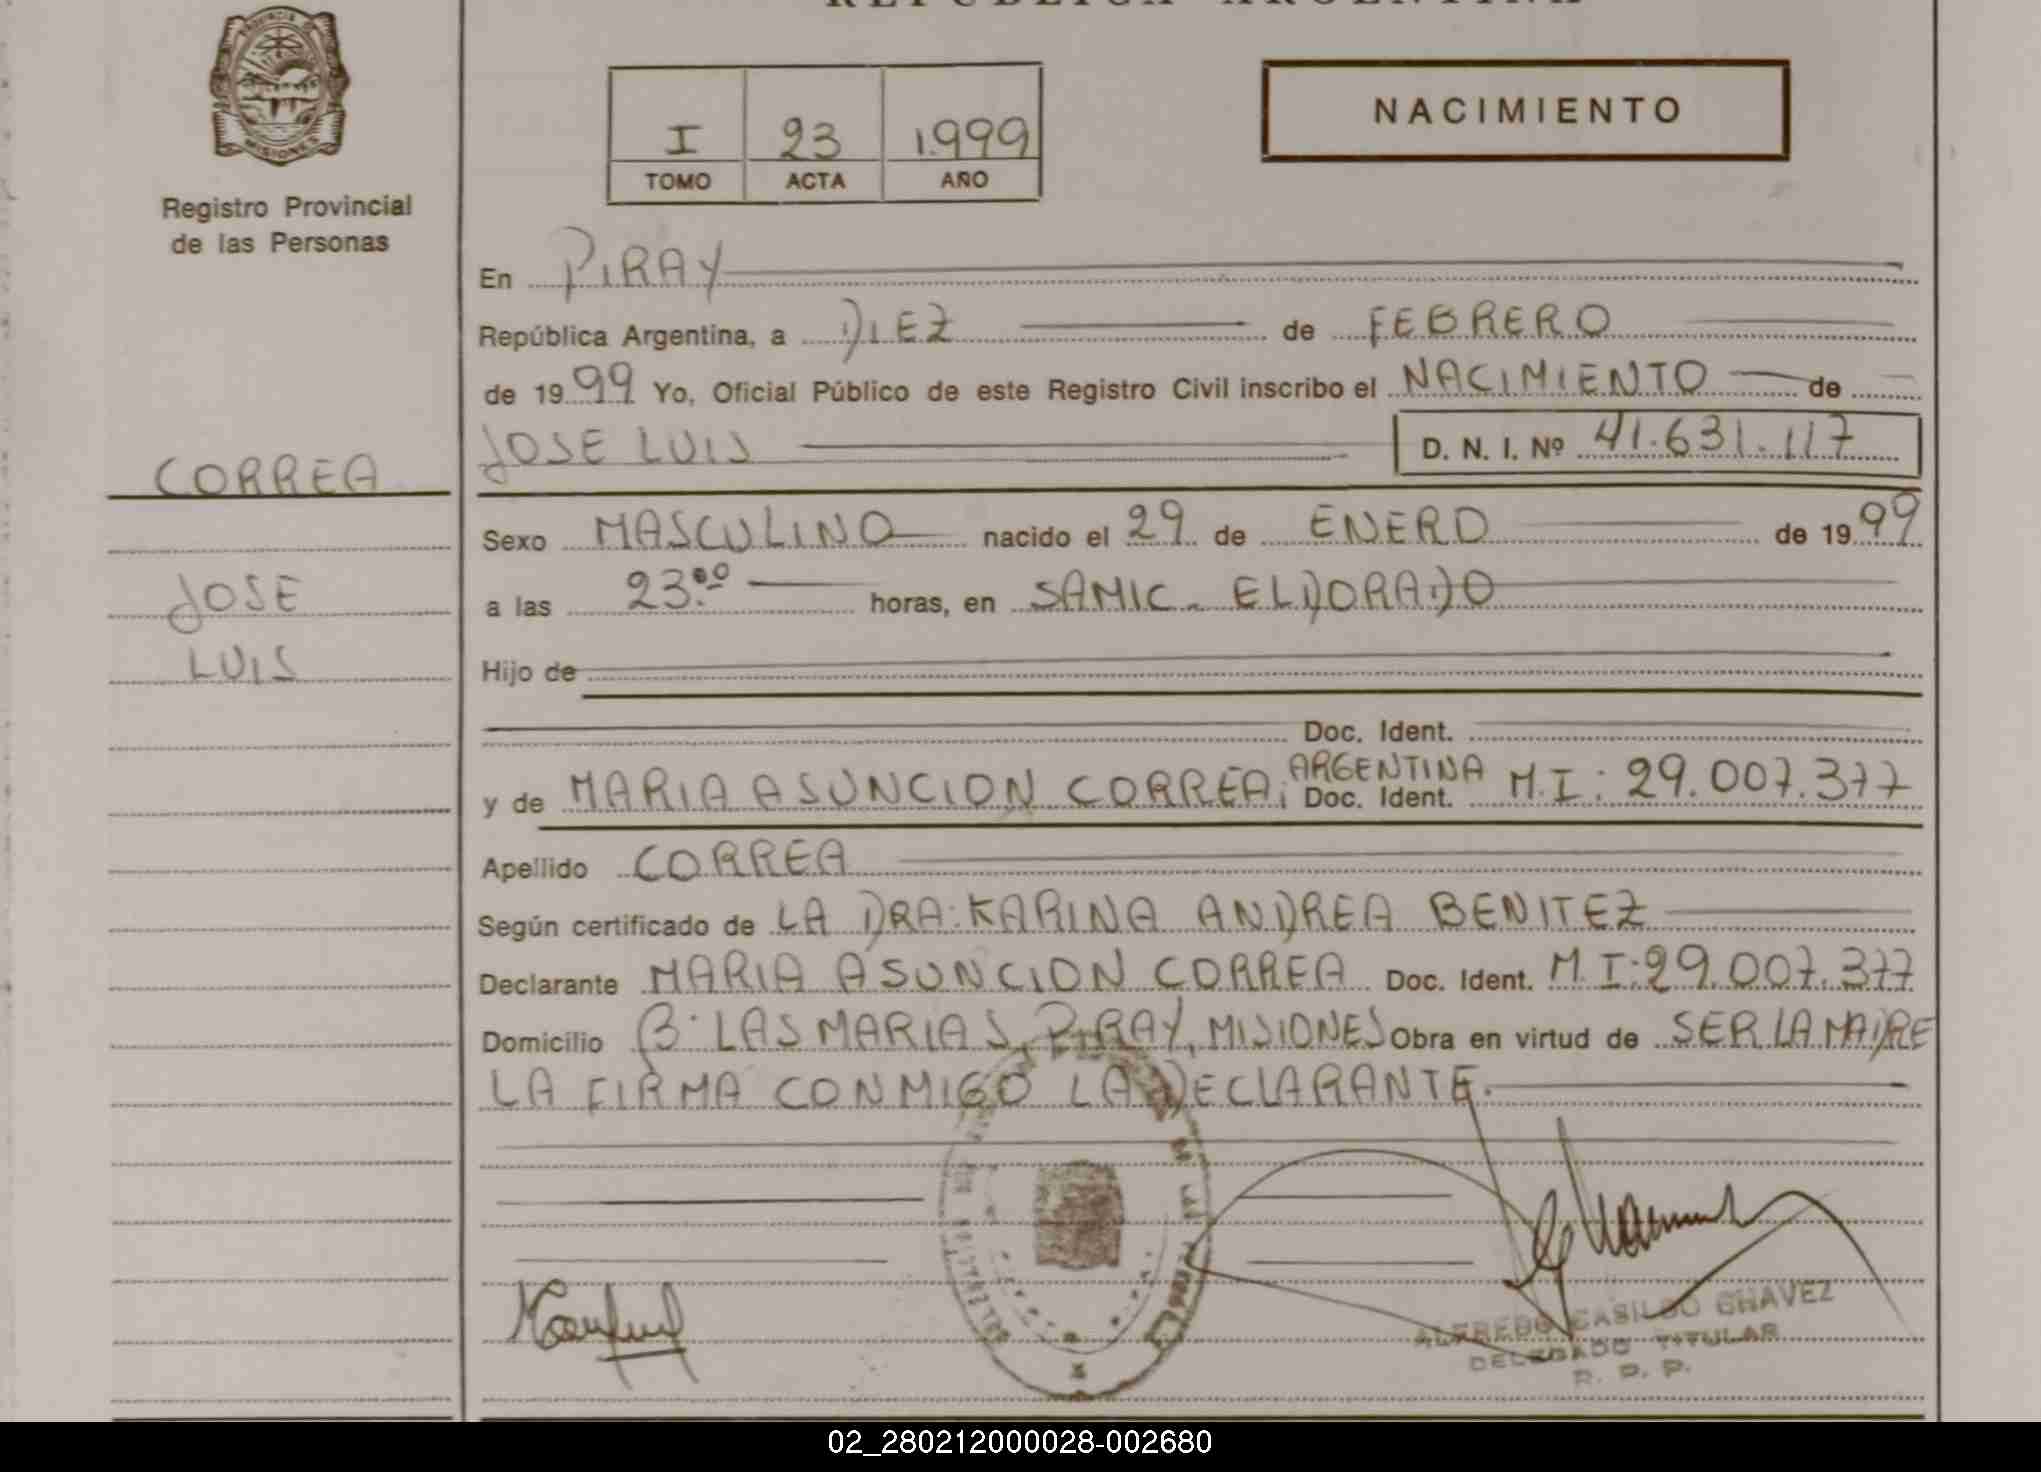 REPUBLICA ARGENTINA
PROVINCIA DE
MISIONES
Registro Provincial
de las Personas
I 23 1.999
TOMO ACTA AÑO
NACIMIENTO
En PIRAY
República Argentina, a DIEZ de FEBRERO
de 1999 Yo, Oficial Público de este Registro Civil inscribo el NACIMIENTO de
CORREA
JOSE LUIS D. N. I. Nº 41.631.117
Sexo MASCULINO nacido el 29 de ENERO de 1999
JOSE
a las 23.00 horas, en SAMIC. ELDORADO
LUIS
Hijo de
Doc. Ident.
y de MARIA ASUNCION CORREA; ARGENTINA Doc. Ident. M.I: 29.007.377
Apellido CORREA
Según certificado de LA DRA: KARINA ANDREA BENITEZ
Declarante MARIA ASUNCION CORREA Doc. Ident. M.I: 29.007.377
Domicilio B: LAS MARIAS, PIRAY, MISIONES Obra en virtud de SER LA MADRE
LA FIRMA CONMIGO LA DECLARANTE.
ALFREDO CASILDO CHAVEZ
DELEGADO TITULAR
R. P. P.
02_280212000028-002680